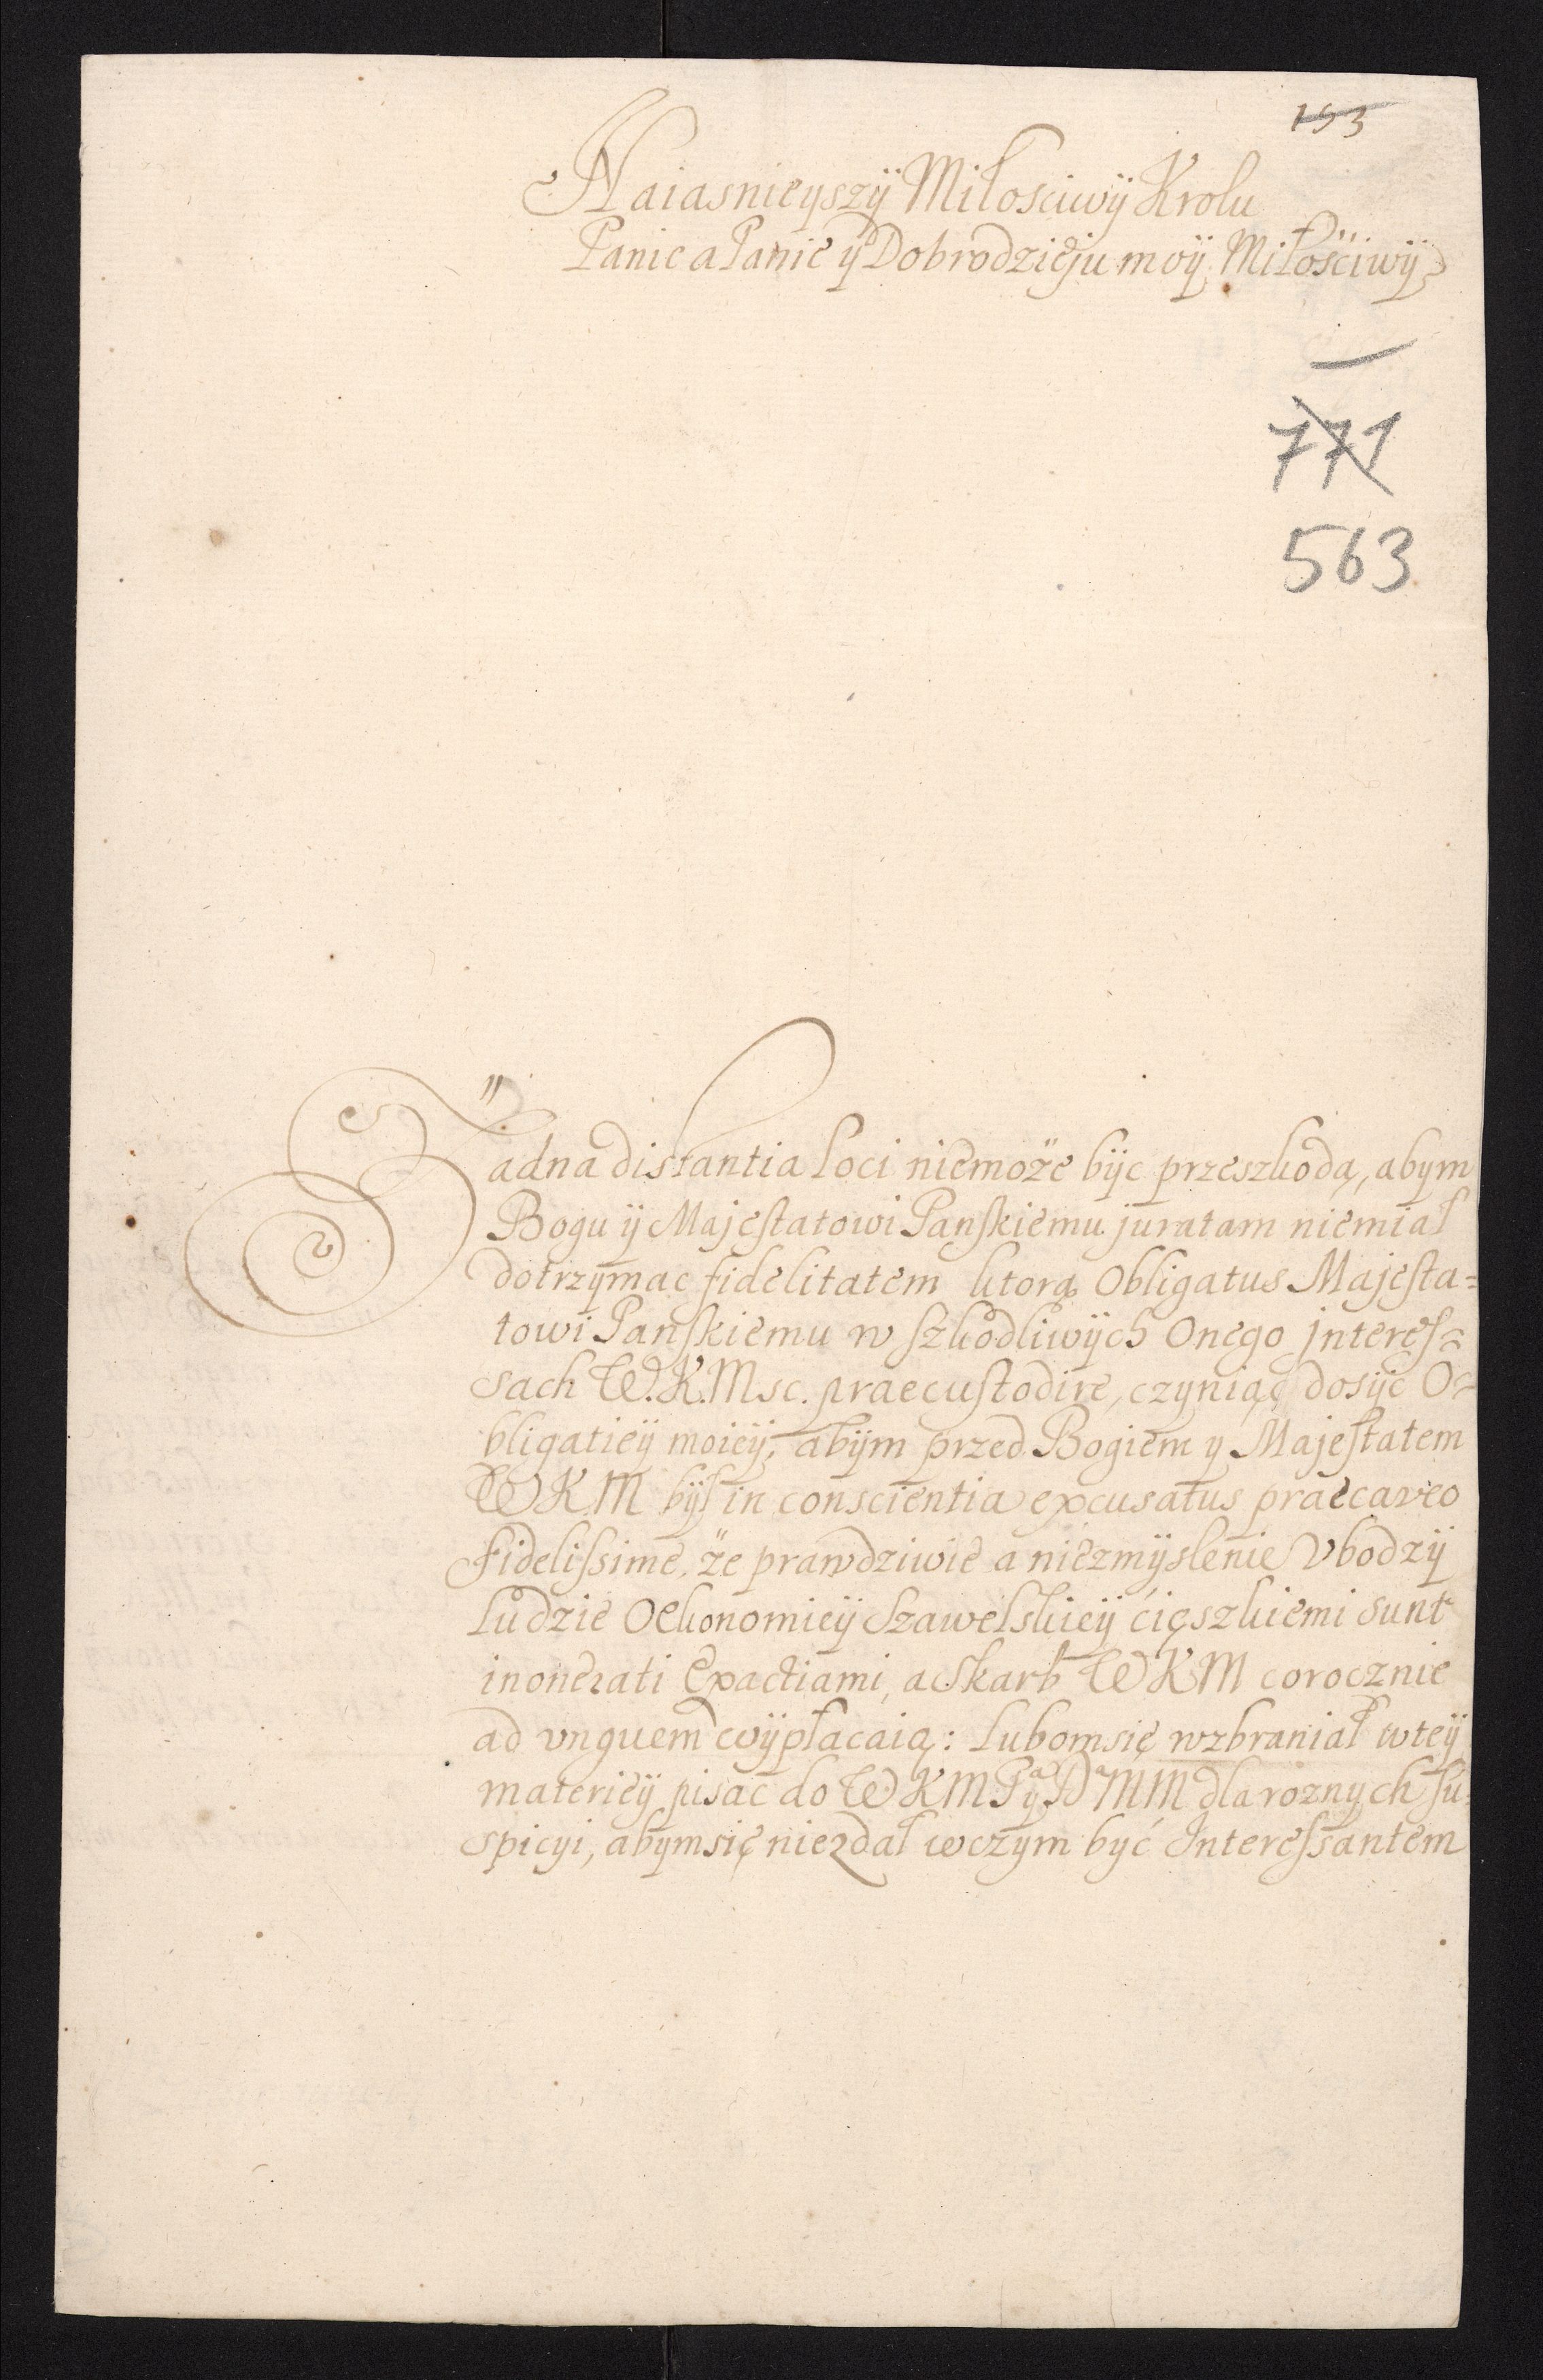 153
Naiasnieyszÿ Miłosciwÿ Krolu
Panie a Panie ÿ Dobrodzieju moÿ Miłosciwÿ
771
563
Żadna distantia loci niemoże bÿc przeszkodą, abym
Bogu ÿ Majestatowi Panskiemu juratam niemiał
dotrzymac fidelitatem ktorą Obligatus Majesta=
towi Panskiemu w szkodliwÿch Onego jnteres=
sach W.K.Msc. praecustodire, czyniąc dosÿc O=
bligatieÿ moieÿ, abÿm przed Bogiem y Majestatem
WKM bÿł in conscientia excusatus praecaveo
Fidelissime, że prawdziwie a niezmÿslenie Vbodzÿ
ludzie Oekonomieÿ Szawelskieÿ cięszkiemi sunt
inonerati Exactiami, a Skarb WKM corocznie
ad vnguem wÿpłacaią: lubomsię wzbraniał wteÿ
materieÿ pisac do WKMPaÿDaMM dla roznych su=
spicyi, abymsię niezdał wczym być Interessantem